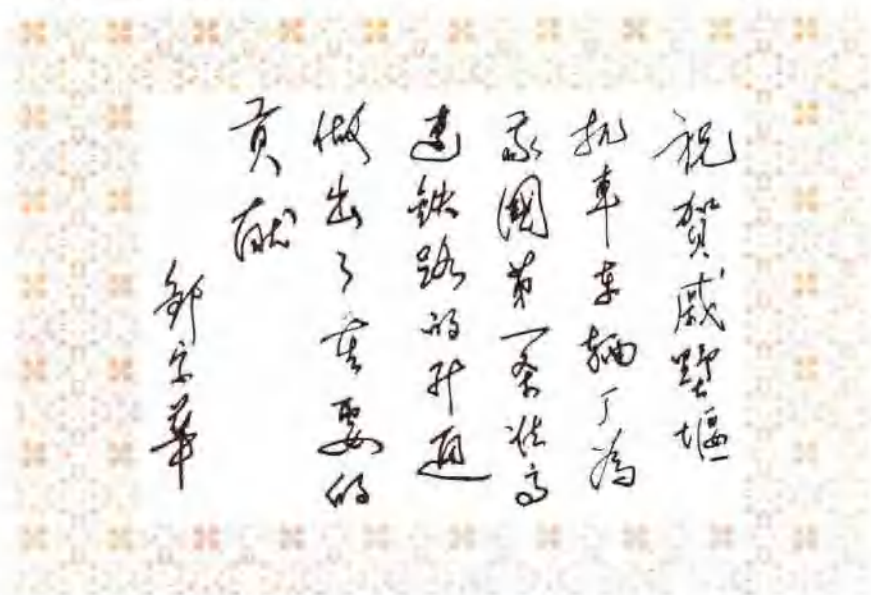 祝賀戚墅堰
机車车辆厂為
我國第一条准高
速铁路的开通
做出了重要的
贡献
邹家華